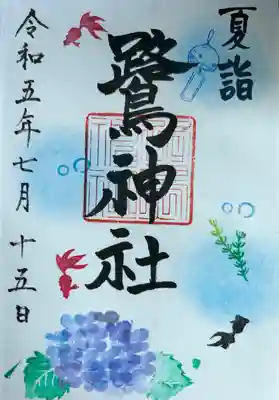 夏詣
鷺神社
令和五年七月十五日